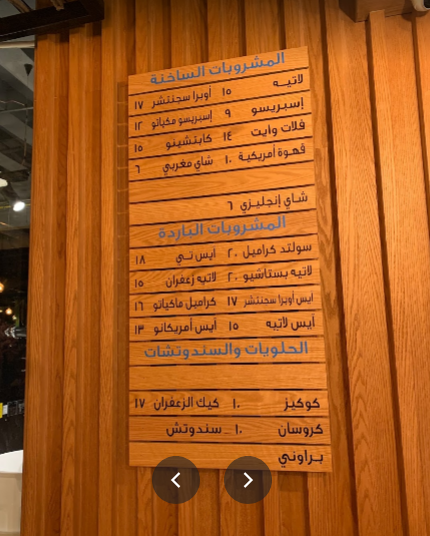 المشروبات الساخنة
لاتيه ١٥ أوبرا سجنتشر ١٧
إسبريسو ٩ إسبريسو مكياتو ١٢
فلات وايت ١٤ كابتشينو ١٥
قهوة أمريكية ١٠ شاي مغربي ٦
شاي إنجليزي ٦
المشروبات الباردة
سولتد كراميل ٢٠ ايس تي ١٨
لاتيه بستاشيو ٢٠ لاتيه زعفران ١٥
ايس أوبرا سجنتشر ١٧ كراميل ماكياتو ١٦
أيس لاتيه ١٥ أيس أمريكانو ١٣
الحلويات والسندوتشات
كوكيز ١٠ كيك الزعفران ١٧
كروسان ١٠ سندوتش
براوني